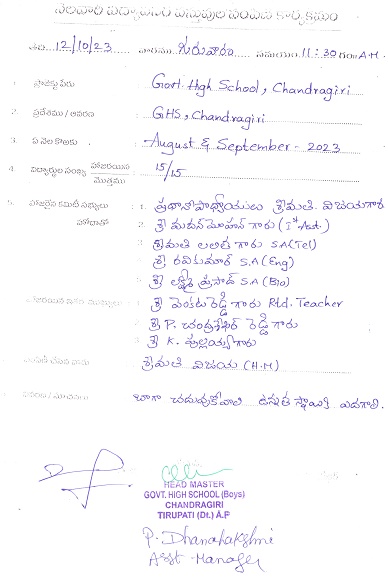 నెలవారీ విద్యావసర వస్తువుల పంపిణీ కార్యక్రమం
తేది 12/10/23 వారము గురువారం సమయం 11:30 గం॥ A.M.
1. ప్రాజెక్టు పేరు : Govt. High School, Chandragiri
2. ప్రదేశము / ఆవరణ : GHS, Chandragiri
3. ఏ నెల కొరకు : August & September - 2023
4. విద్యార్థుల సంఖ్య హాజరయిన / మొత్తము : 15/15
5. హాజరైన కమిటీ సభ్యులు : 1. ప్రధానోపాధ్యాయులు శ్రీమతి. విజయగారు
హోదాతో 2. శ్రీ మదన్ మోహన్ గారు (Ist Asst.)
శ్రీమతి లలిత గారు S.A(Tel)
శ్రీ రవికుమార్ S.A (Eng)
శ్రీ లక్ష్మీ ప్రసాద్ S.A (Bio)
హాజరయిన ఇతర ముఖ్యులు : శ్రీ వెంకటరెడ్డి గారు Rtd. Teacher
శ్రీ P. చంద్రశేఖర్ రెడ్డి గారు
శ్రీ K. పుల్లయ్య గారు
పంపిణీ చేసిన వారు శ్రీమతి విజయ (H.M)
వివరణ / సూచనలు : బాగా చదువుకోవాలి ఉన్నత స్థాయికి ఎదగాలి.
HEAD MASTER
GOVT. HIGH SCHOOL (Boys)
CHANDRAGIRI
TIRUPATI (Dt.) A.P
P. Dhanalakshmi
Asst Manager